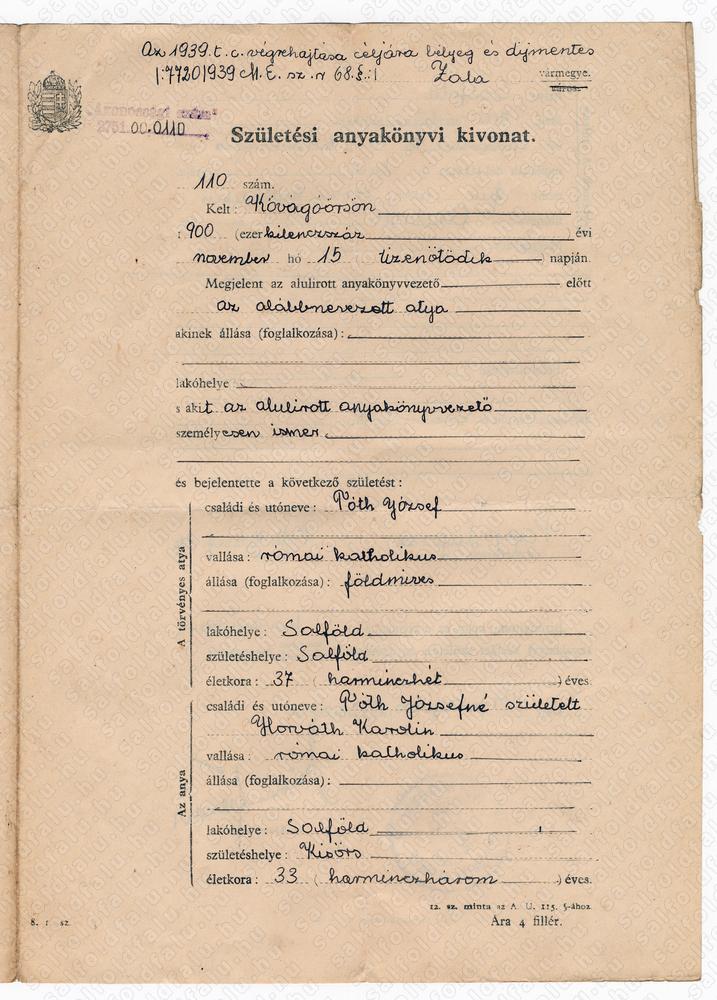 Az 1939. t. c. végrehajtása céljára bélyeg és díjmentes
|:7720/1939 M. E. sz. r 68. §.:| Zala vármegye.
város.
00.0110
Születési anyakönyvi kivonat.
110 szám.
Kelt: Kővágóőrsön
1900 (ezerkilenczszáz ) évi
november hó 15 ( tizenötödik ) napján.
Megjelent az alulirott anyakönyvvezető előtt
az alábbnevezett atya
akinek állása (foglalkozása):
lakóhelye
s akit az alulirott anyakönyvvezető
személyesen ismer,
és bejelentette a következő születést:
A törvényes atya
családi és utóneve: Tóth József
vallása: római katholikus
állása (foglalkozása): földmives
lakóhelye: Salföld
születéshelye: Salföld
életkora: 37 ( harminczhét ) éves.
Az anya
családi és utóneve: Tóth Józsefné született
Horváth Karolin
vallása: római katholikus
állása (foglalkozása):
lakóhelye: Salföld
születéshelye: Kisörs
életkora: 33 ( harminczhárom ) éves.
12. sz. minta az A. U. 115. §-ához.
8. r. sz. Ára 4 fillér.